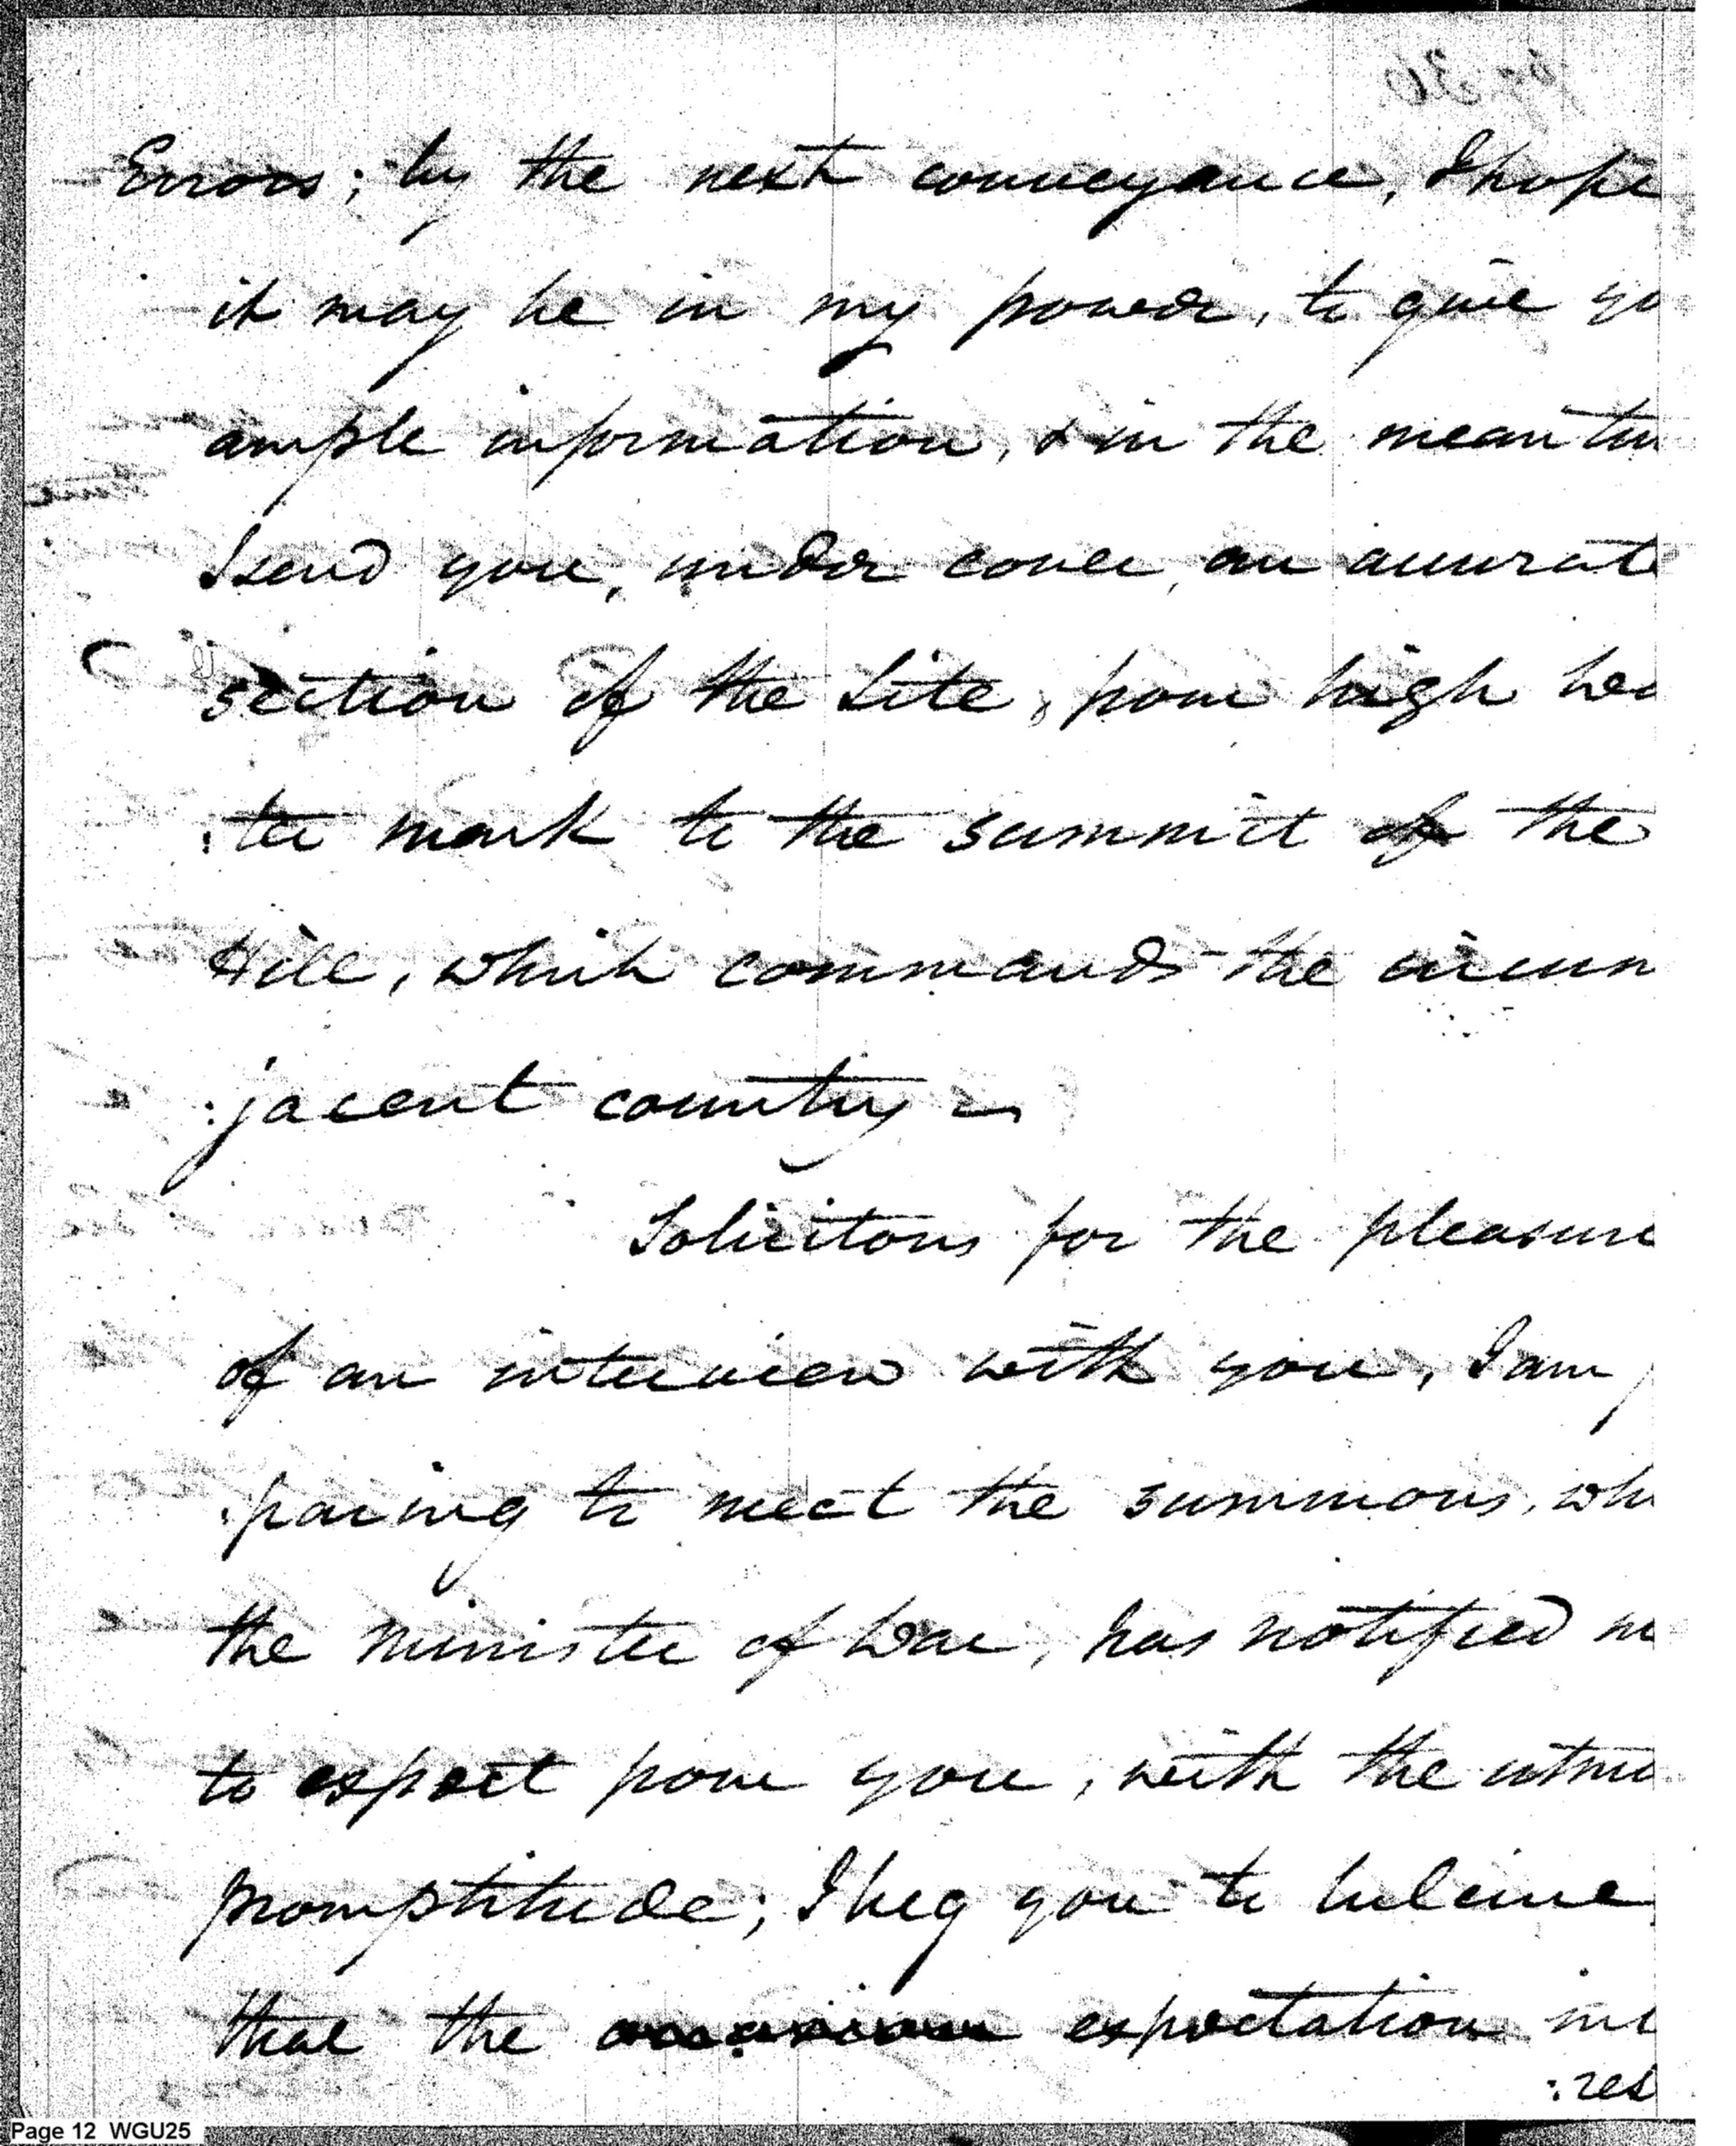 Errors; by the next conveyance, I hope
it may be in my power, to give yo
ample information, & in the mean tim
I send you, under cover, an accurate
section of the Site, from high
:ter mark to the summit of the
Hill, which commands the circum
:jacent country
Solicitous for the pleasure
of an interview with you, I am p
:paring to meet the summons, whi
the Minister of War, has notified me
to expect from you, with the utmo
promptitude; I beg you to believe
that the expectation
:res
Page 12 WGU25